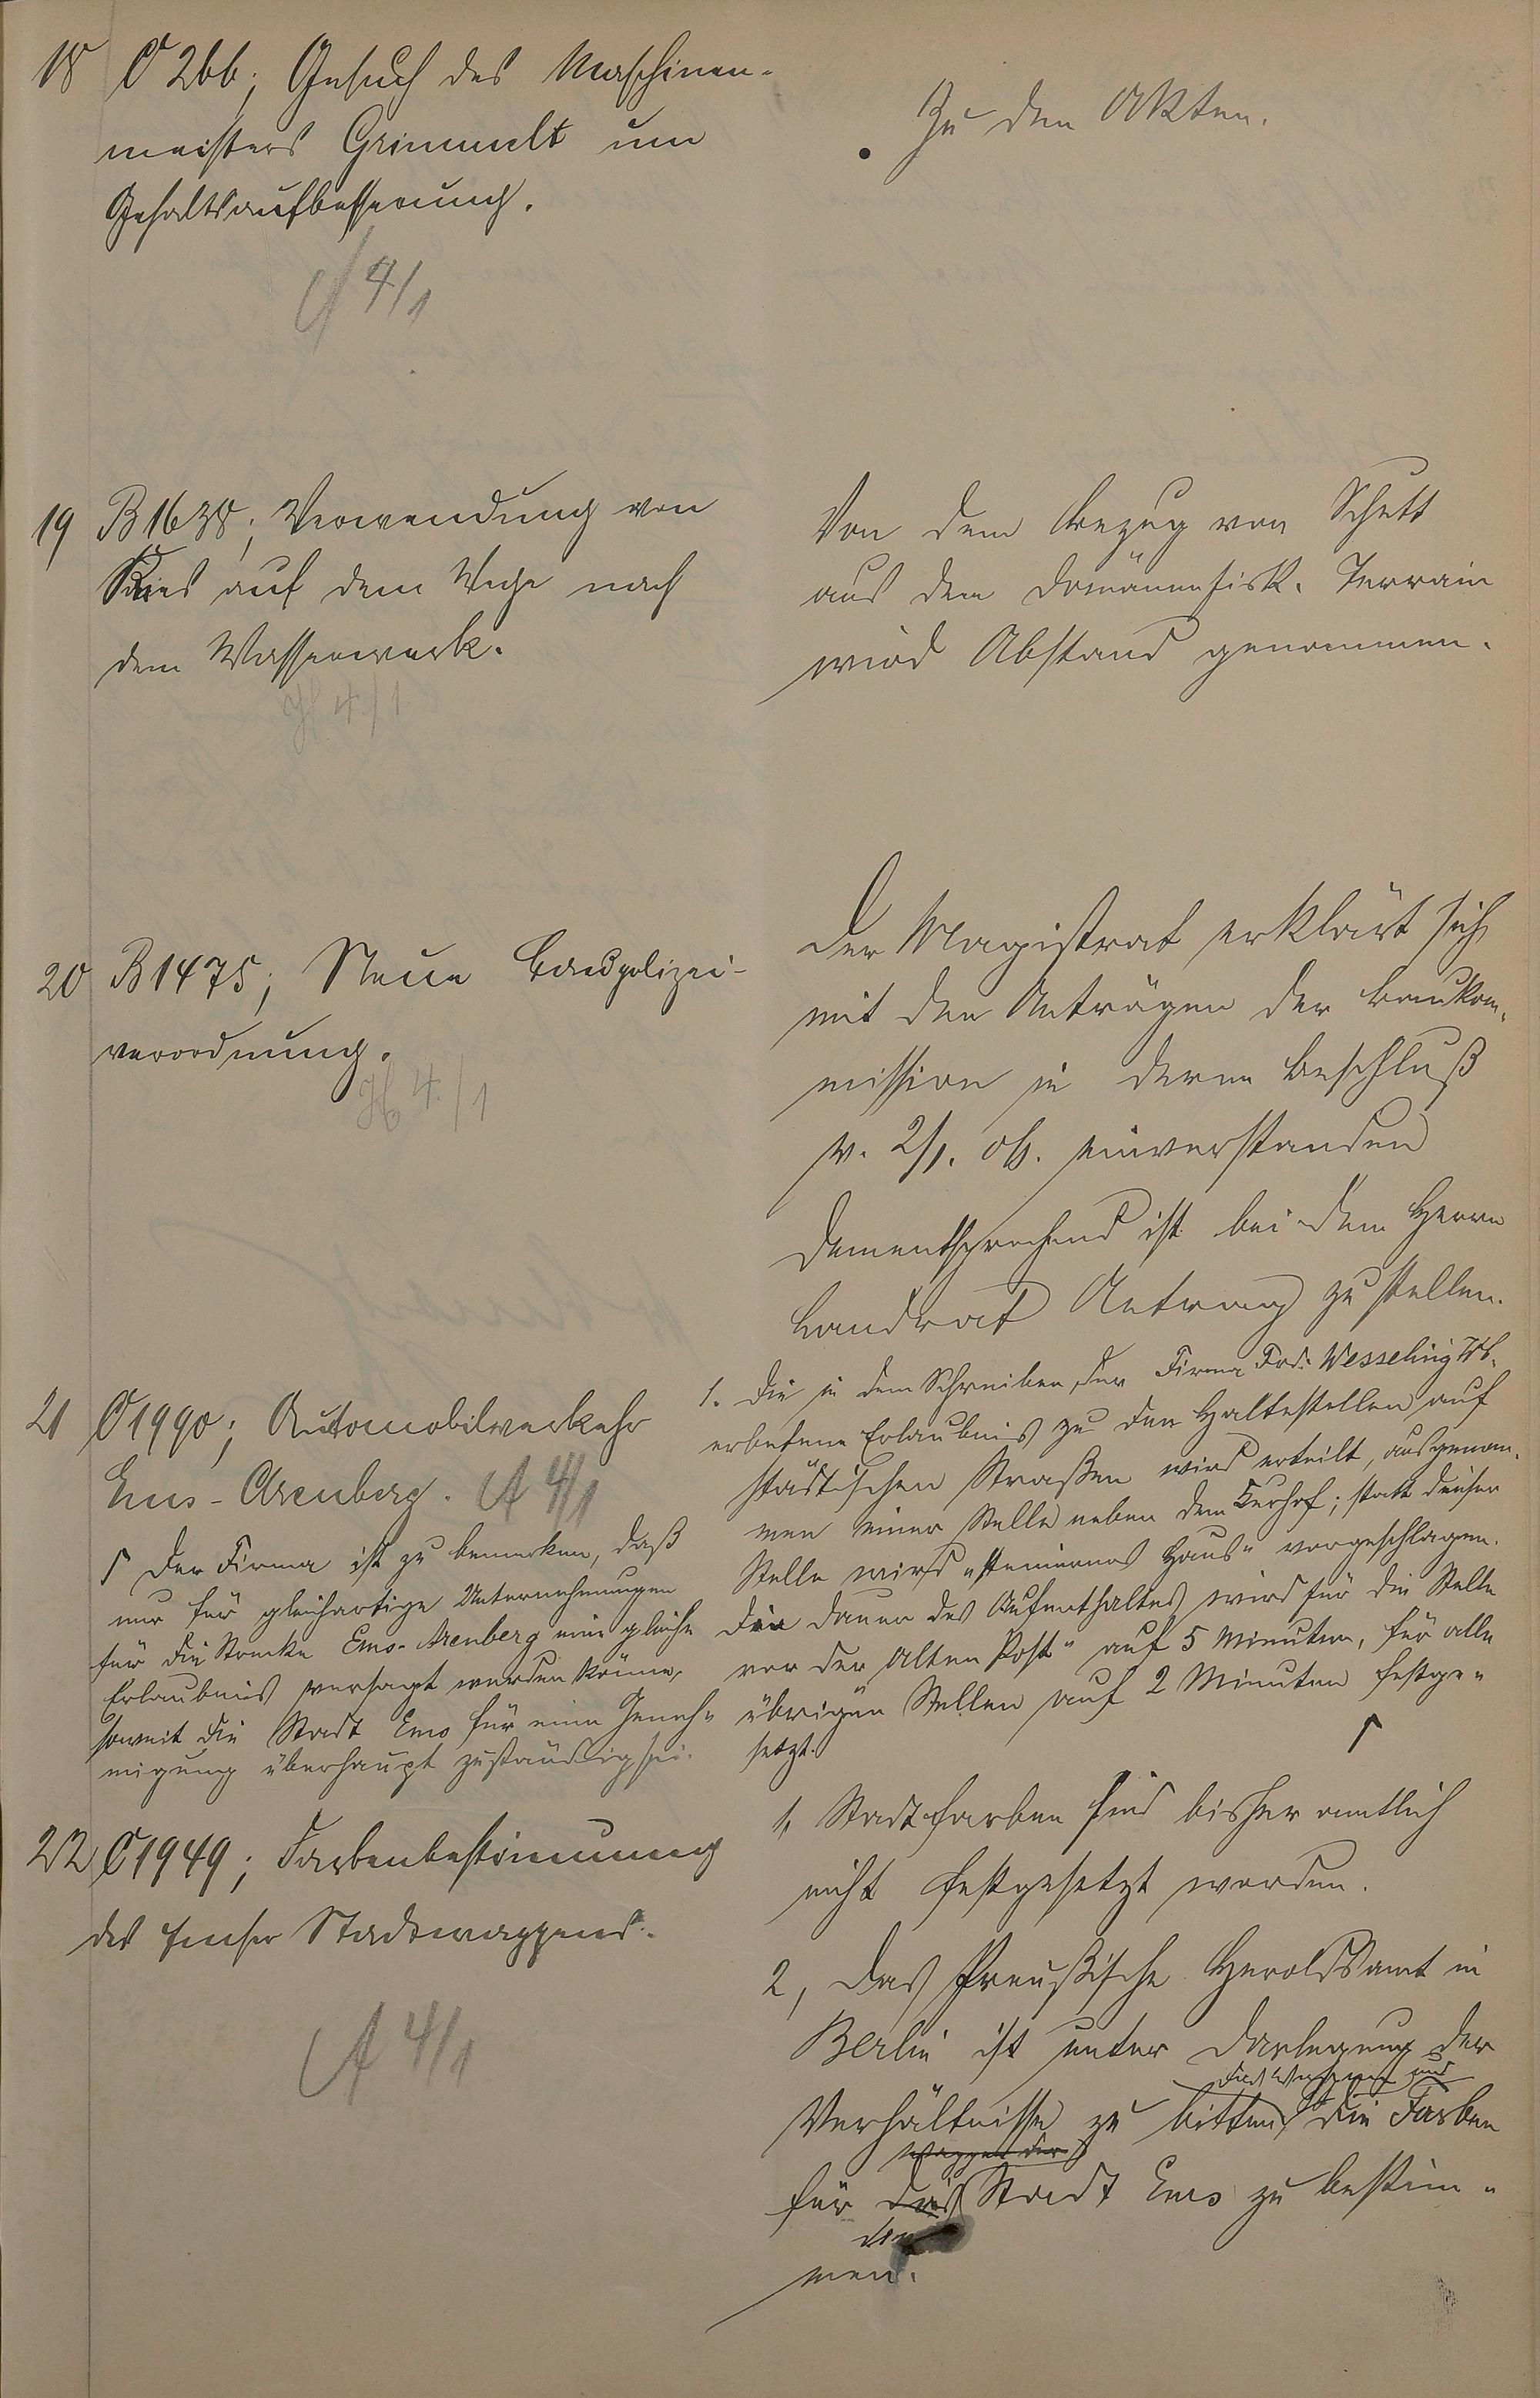 18 C 266; Gesuch des Maschinen-
meisters Grimmelt um
Gehaltsaufbesserung.
A 4/1
Zu den Akten.
19 B 1638; Verwendung von
Kies auf dem Wege nach
dem Wasserwerk.
H 4./1.
Von dem Bezug von Schutt
aus dem domänenfisk. Terrain
wird Abstand genommen.
20 B 1475; Neue Baupolizei-
verordnung.
H 4./1
Der Magistrat erklärt sich
mit den Anträgen der Baukom-
mission in deren Beschluß
v. 2/1. 06. einverstanden
Dementsprechend ist bei dem Herrn
Landrat Antrag zu stellen.
21 C 1990; Automobilverkehr
Ems-Arenberg. A 4/1
Γ Der Firma ist zu bemerken, daß
nur für gleichartige Unternehmungen
für die Strecke Ems-Arenberg eine gleiche
Erlaubnis versagt werden könne,
soweit die Stadt Ems für eine Geneh-
migung überhaupt zuständig sei.
1. Die in dem Schreiben der Firma Frd. Wesseling
erbetene Erlaubnis zu den Haltestellen auf
städtischen Straßen wird erteilt, ausgenom-
men einer Stelle neben dem Kurhof; statt dieser
Stelle wird "steinernes Haus" vorgeschlagen.
Die Dauer des Aufenthaltes wird für die Stelle
vor der Alten Post" auf 5 Minuten, für alle
übrigen Stellen auf 2 Minuten festge-
setzt. Γ
22 C 1949; Farbenbestimmung
des Emser Stadtwappens.
A 4/1
1, Stadtfarben sind bisher amtlich
nicht festgesetzt worden.
2, Das Preußische Heroldsamt in
Berlin ist unter Darlegung der
das Wappen und
Verhältnisse zu bitten, die Farben
Wappen der
für das Stadt Ems zu bestim-
den
men.